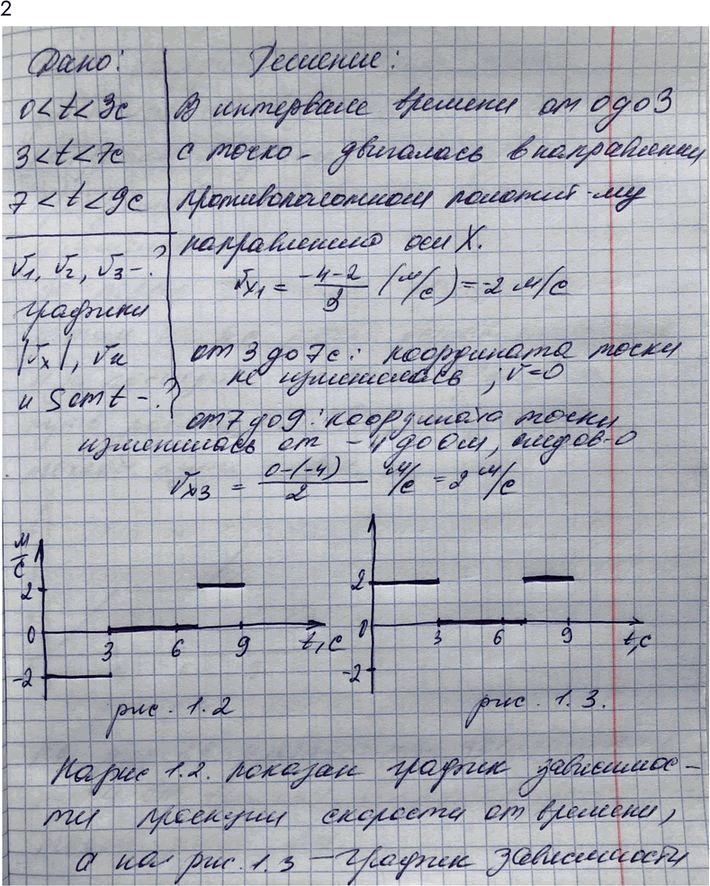 2
Дано:
0 < t < 3с
3 < t < 7с
7 < t < 9с
v₁, v₂, v₃ - ?
графики
|vₓ|, vₓ
и S от t - ?
Решение:
В интервале времени от 0 до 3
с точка - двигалась в направлении
противоположном положит-му
направлению оси X.
vₓ₁ = (-4-2)/3 (м/с) = -2 м/с
от 3 до 7с: координата точки
не изменилась ; v=0
от 7 до 9: координата точки
изменилась от -4 до 0м, следов-о
vₓ₃ = (0-(-4))/2 м/с = 2 м/с
м/с
2
0
-2
3 6 9 t, с
рис. 1.2
2
0
-2
3 6 9 t, с
рис. 1.3.
На рис 1.2. показан график зависимос-
ти проекции скорости от времени,
а на рис. 1.3 - график зависимости